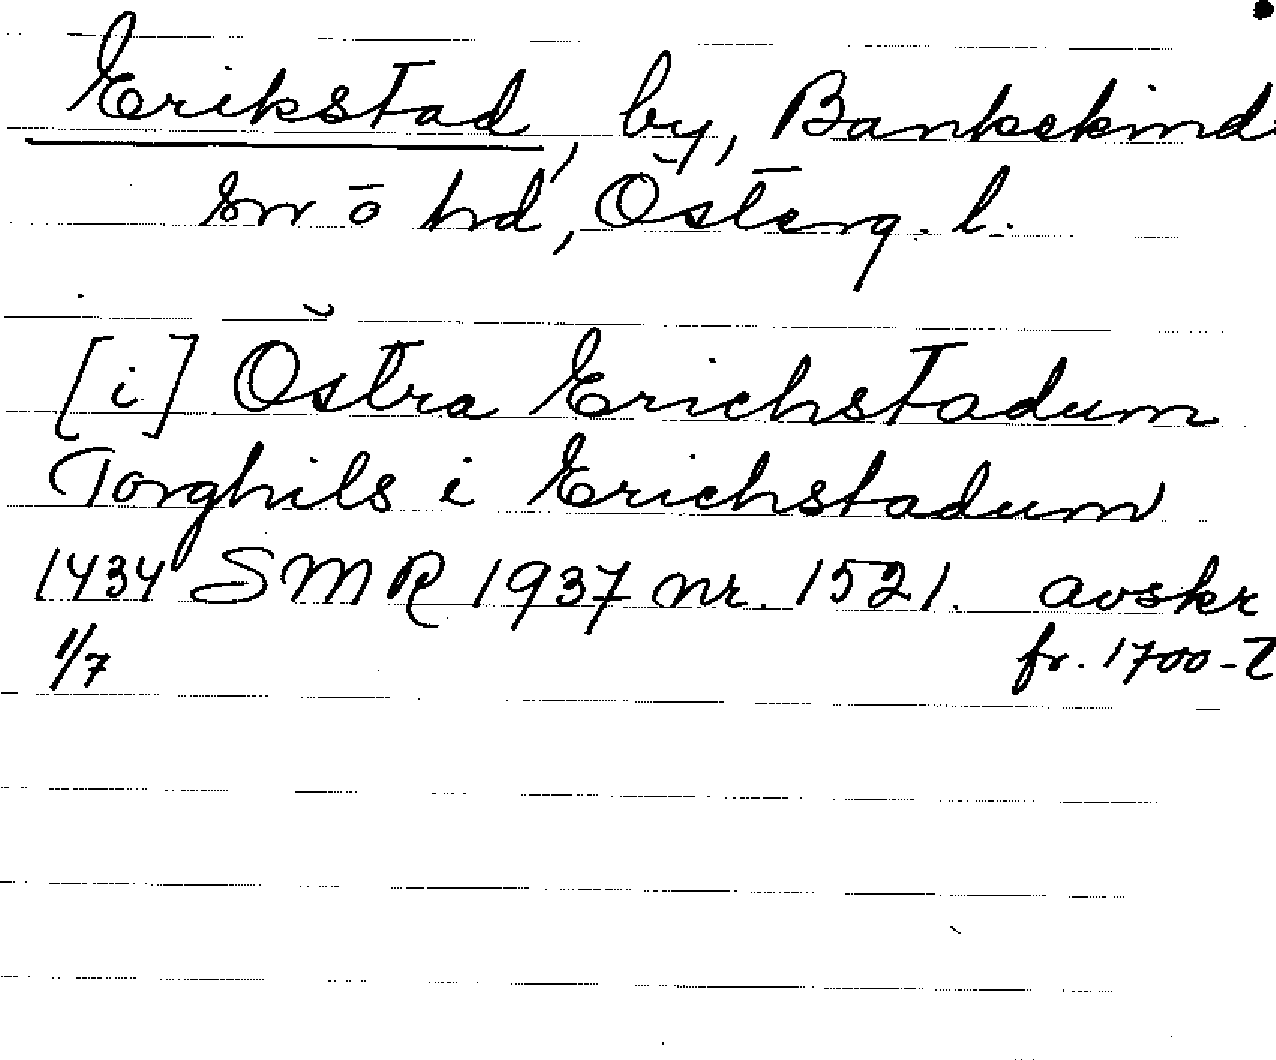 Erikstad, by, Bankekind
sn o hd, Österg. l.
[i] Östra Erichstadum
Torghils i Erichstadum
1434 SMR 1937 nr. 1521. avskr
1/7 fr. 1700-